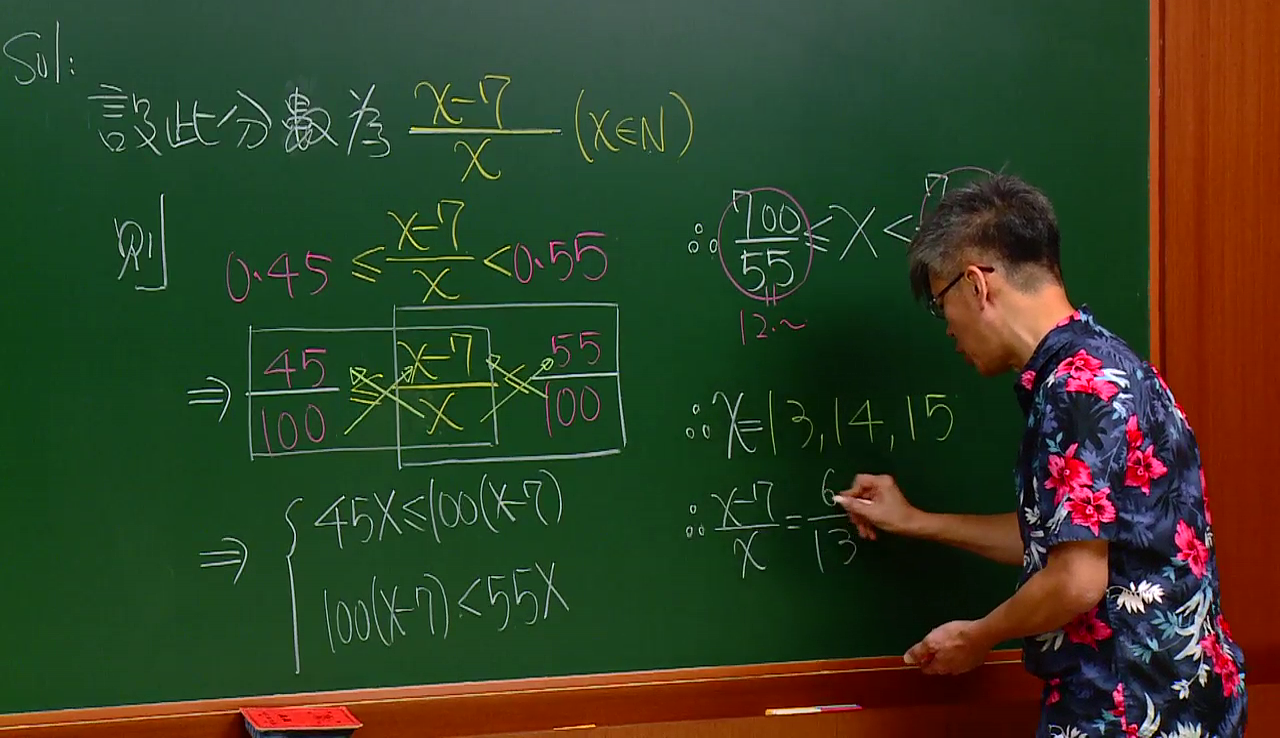 Sol:
設此分數為 x-7/x (x∈N)
則 0.45 ≤ x-7/x < 0.55
⇒ 45/100 ≤ x-7/x < 55/100
⇒ { 45x≤100(x-7)
100(x-7)<55x
∴ 700/55 ≤ x < 7
12.~
∴ x=13,14,15
∴ x-7/x = 6/13